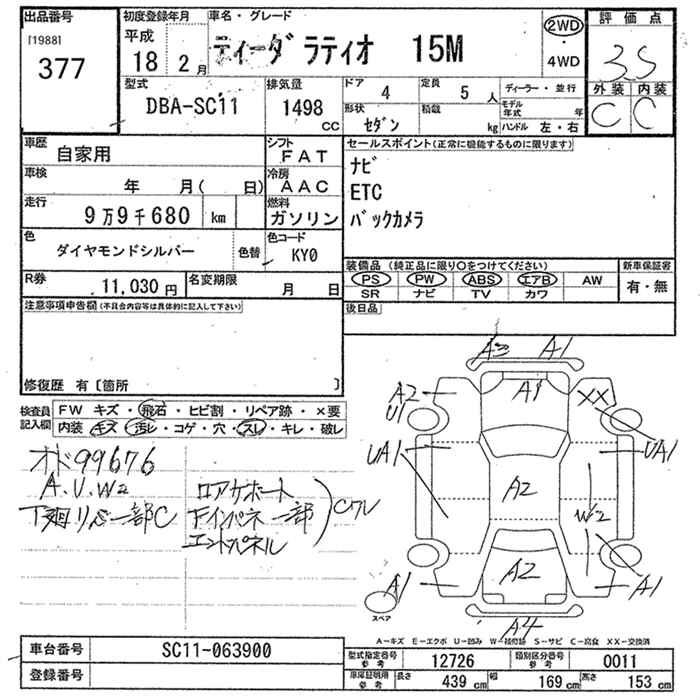 出品番号 初度登録年月 車名・グレード 評価点
[1988] 377
平成 18 2月
ティーダ ラティオ 15M
2WD ・ 4WD
3.5
外装 内装
C C
型式 DBA-SC11
排気量 1498 CC
ドア 4 定員 5人
形状 セダン 積載 kg
ディーラー・並行
モデル年式 年
ハンドル 左・右
車歴 自家用
シフト FAT
車検 年 月( 日)
冷房 AAC
走行 9万9千680 km
燃料 ガソリン
色 ダイヤモンドシルバー 色替
色コード KY0
R券 11,030円
名変期限 月 日
セールスポイント(正常に機能するものに限ります)
ナビ
ETC
バックカメラ
装備品 (純正品に限り○をつけてください) 新車保証書
PS PW ABS エアB AW 有・無
SR ナビ TV カワ
後日品
注意事項申告欄(不具合内容等は具体的に記入して下さい)
修復歴 有〔箇所 〕
検査員記入欄
FW キズ・飛石・ヒビ割・リペア跡・×要
内装 キズ・汚レ・コゲ・穴・スレ・キレ・破レ
オド99676
A.U.W2
下廻りサビ一部C
ロアサポート
Fインパネ一部
エンドパネル
Cワレ
A3 A1
A2 U1 A1 XX
UA1 UA1
A2
W2
A2
A1 A1
A4
スペア
A−キズ E−エクボ U−凹み W−補修跡 S−サビ C−腐食 XX−交換済
車台番号 SC11-063900
登録番号
型式指定番号 参考 12726
類別区分番号 参考 0011
車庫証明用 参考 長さ 439 cm 幅 169 cm 高さ 153 cm